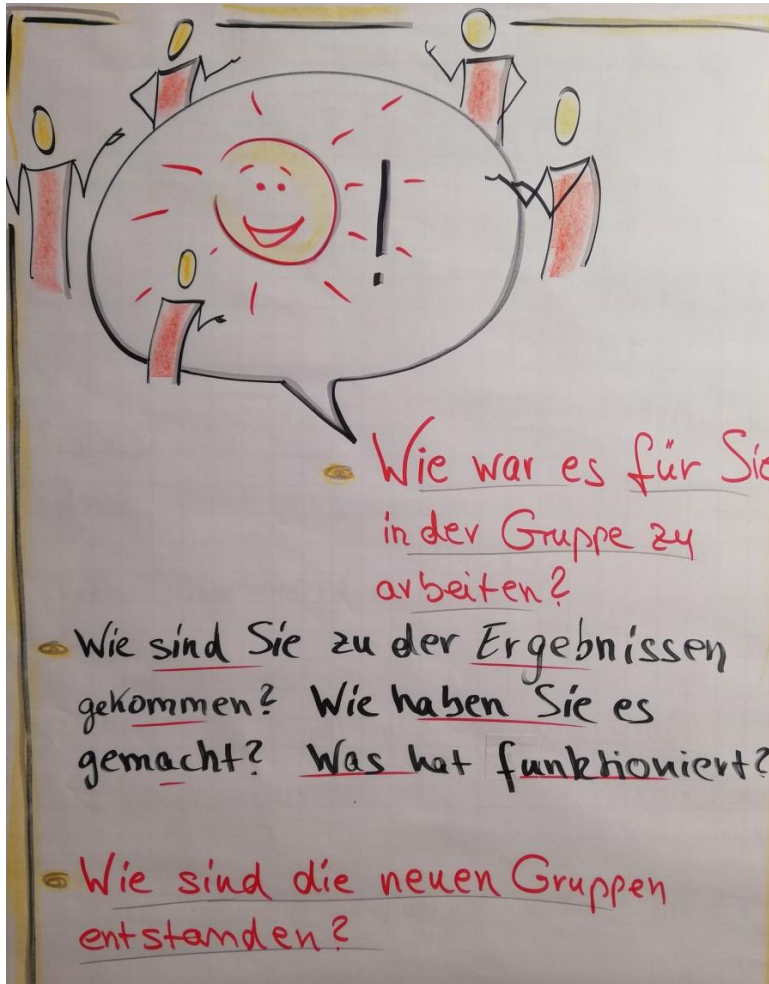 Wie war es für Sie
in der Gruppe zu
arbeiten?
Wie sind Sie zu der Ergebnissen
gekommen? Wie haben Sie es
gemacht? Was hat funktioniert?
Wie sind die neuen Gruppen
entstanden?